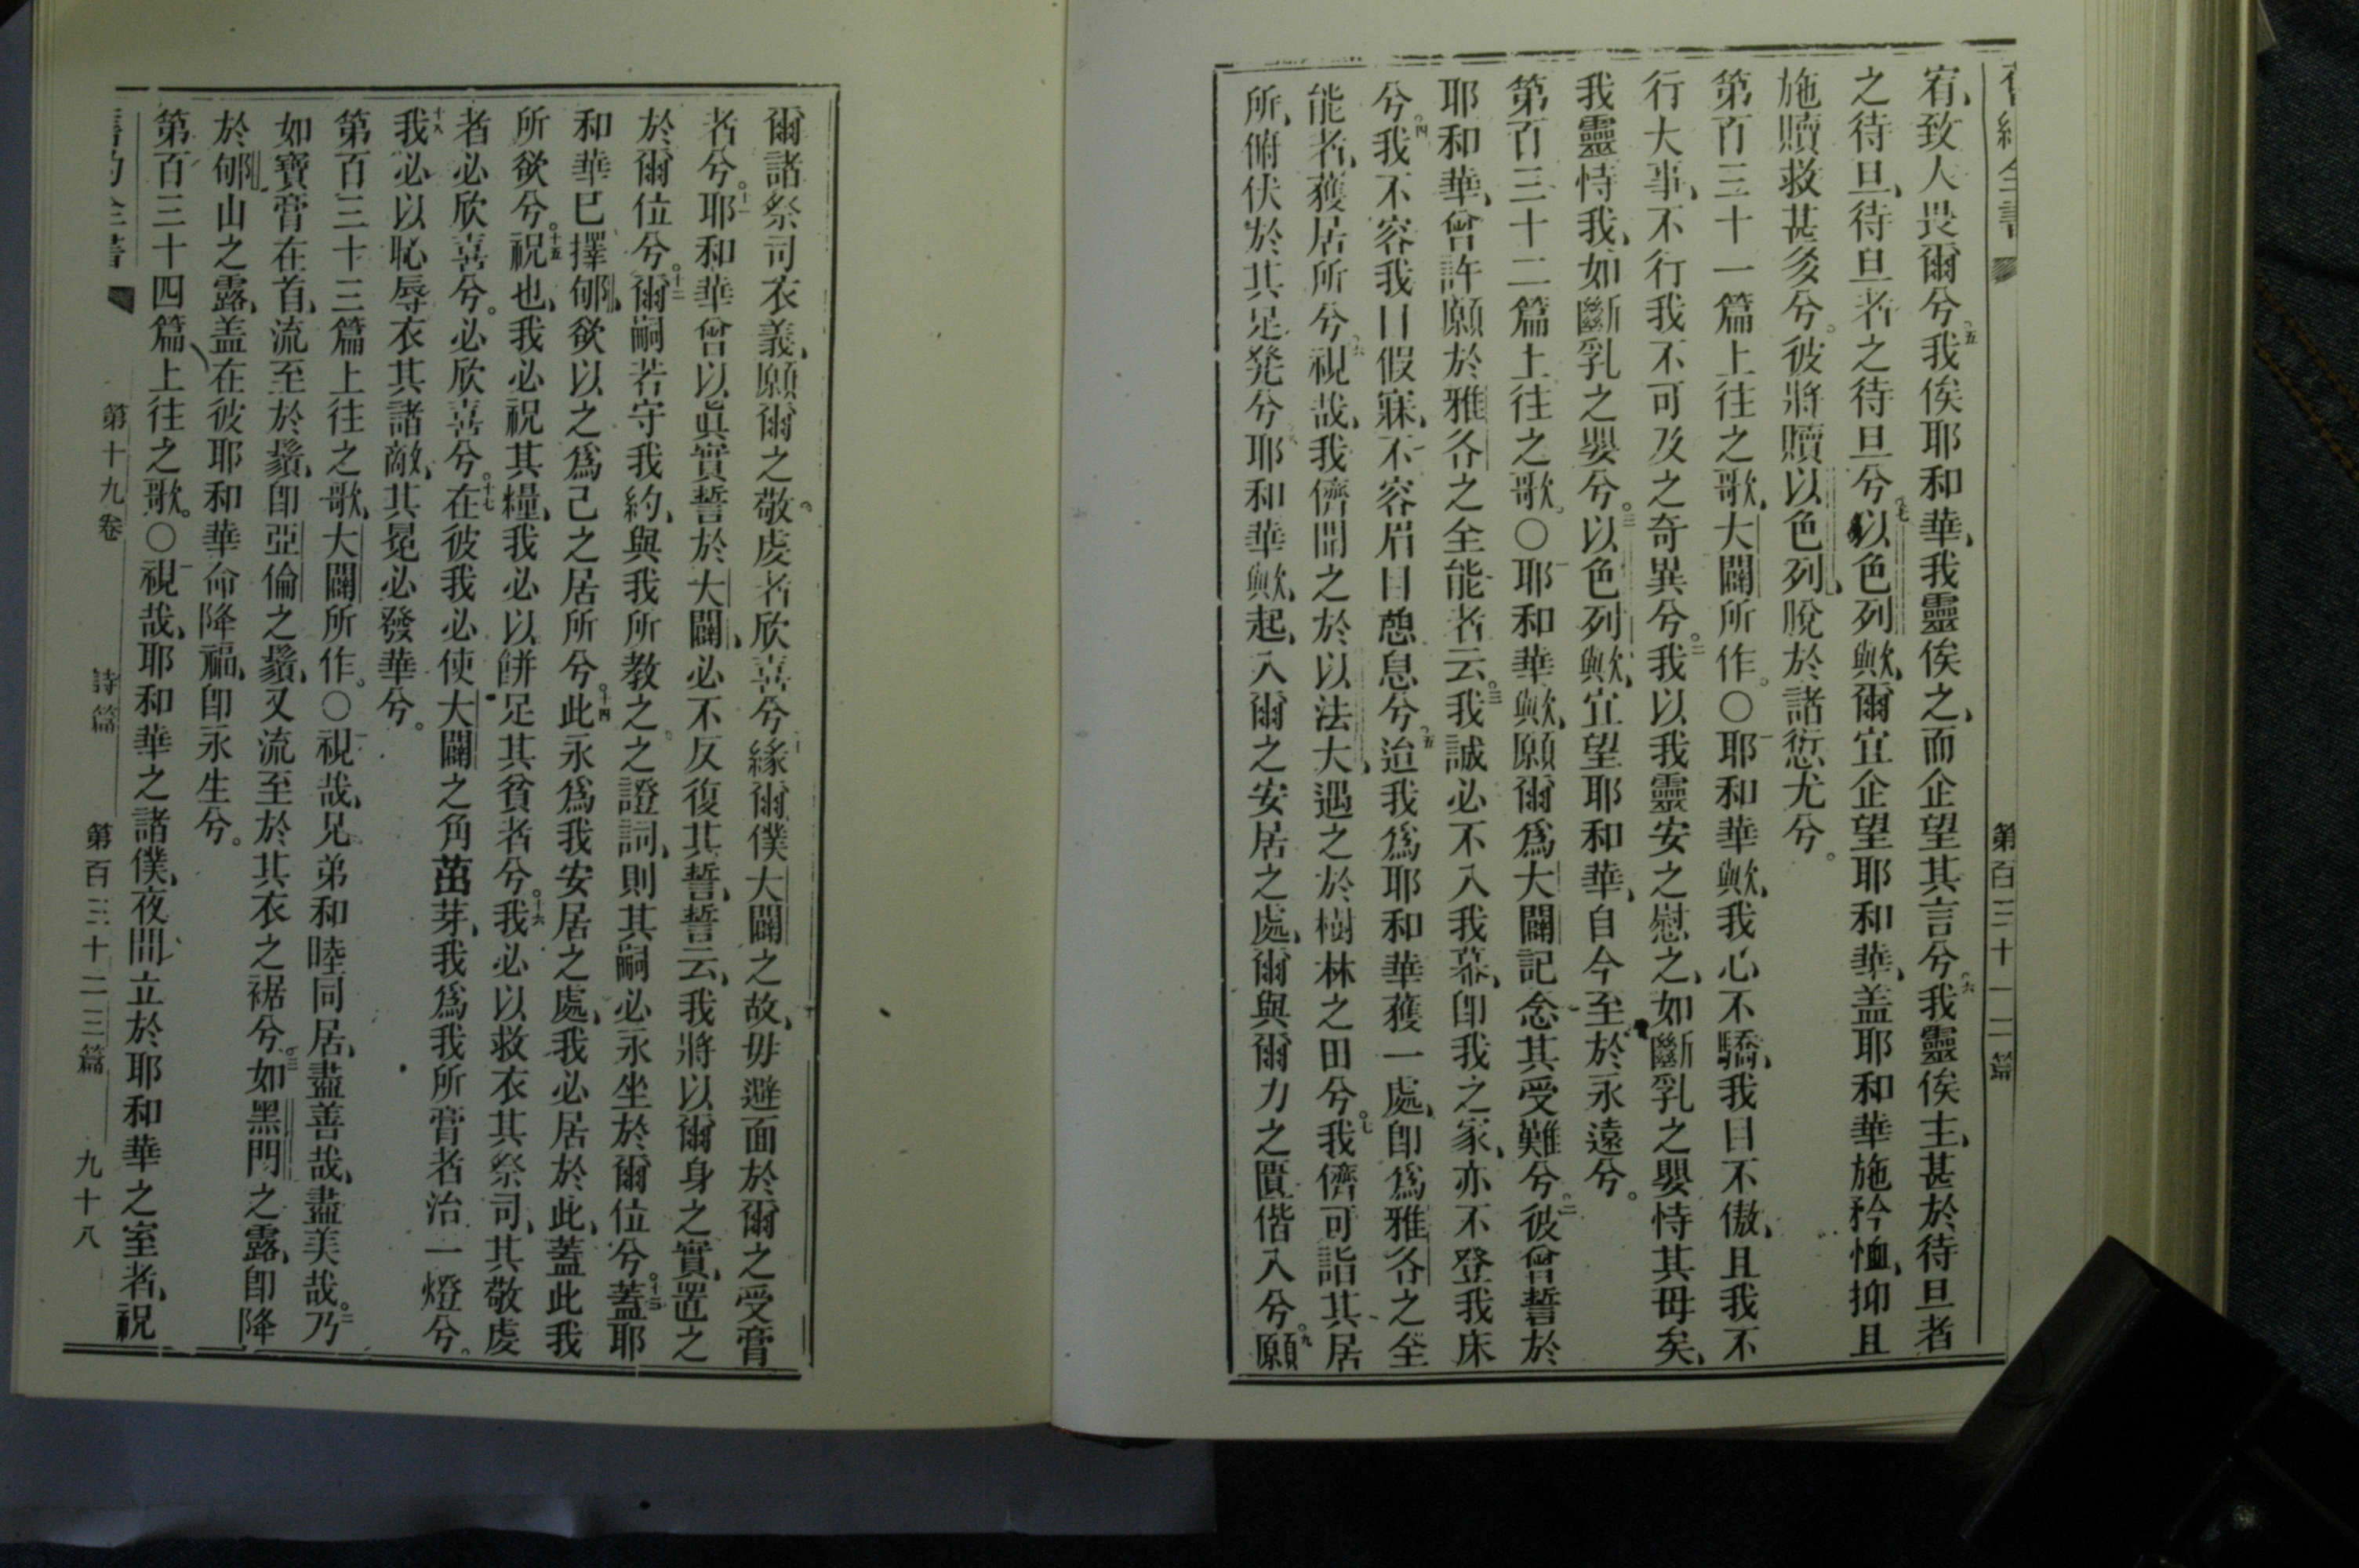 宥、致人畏爾兮。五我俟耶和華、我靈俟之、而企望其言兮。六我靈俟主、甚於待旦者
之待旦、待旦者之待旦兮。七以色列歟、爾宜企望耶和華、盖耶和華施矜恤、抑且
施贖救甚多兮。彼將贖以色列、脫於諸愆尤兮。
第百三十一篇上往之歌、大闢所作。○一耶和華歟、我心不驕、我目不傲、且我不
行大事、不行我不可及之奇異兮。二我以我靈安之慰之、如斷乳之嬰恃其母矣、
我靈恃我、如斷乳之嬰兮。三以色列歟、宜望耶和華、自今至於永遠兮。
第百三十二篇上往之歌。○一耶和華歟、願爾爲大闢記念其受難兮。二彼曾誓於
耶和華、曾許願於雅各之全能者云。三我誠必不入我幕、卽我之家、亦不登我床
兮。四我不容我目假寐、不容眉目憩息兮。五迨我爲耶和華獲一處、卽爲雅各之全
能者、獲居所兮。六視哉、我儕聞之於以法大、遇之於樹林之田兮。七我儕可詣其居
所、俯伏於其足凳兮。八耶和華歟、起、入爾之安居之處、爾與爾力之匱偕入兮。九願
第百三十一二篇
爾諸祭司衣義、願爾之敬虔者欣喜兮。十緣爾僕大闢之故、毋避面於爾之受膏
者兮。十一耶和華曾以眞實誓於大闢、必不反復其誓、誓云、我將以爾身之實、置之
於爾位兮。十二爾嗣若守我約、與我所教之之證詞、則其嗣必永坐於爾位兮。十三蓋耶
和華已擇郇、欲以之爲己之居所兮。十四此永爲我安居之處、我必居於此、蓋此我
所欲兮。十五祝也、我必祝其糧、我必以餠足其貧者兮。十六我必以救衣其祭司、其敬虔
者必欣喜兮。必欣喜兮。十七在彼我必使大闢之角茁芽、我爲我所膏者治一燈兮。
十八我必以恥辱衣其諸敵、其冕必發華兮。
第百三十三篇上往之歌、大闢所作。○一視哉、兄弟和睦同居、盡善哉、盡美哉。二乃
如寶膏在首、流至於鬚、卽亞倫之鬚、又流至於其衣之裾兮。三如黑門之露、卽降
於郇山之露、盖在彼耶和華命降福、卽永生兮。
第百三十四篇上往之歌。○一視哉、耶和華之諸僕、夜間立於耶和華之室者、祝
舊約全書 第十九卷 詩篇 第百三十二三篇 九十八